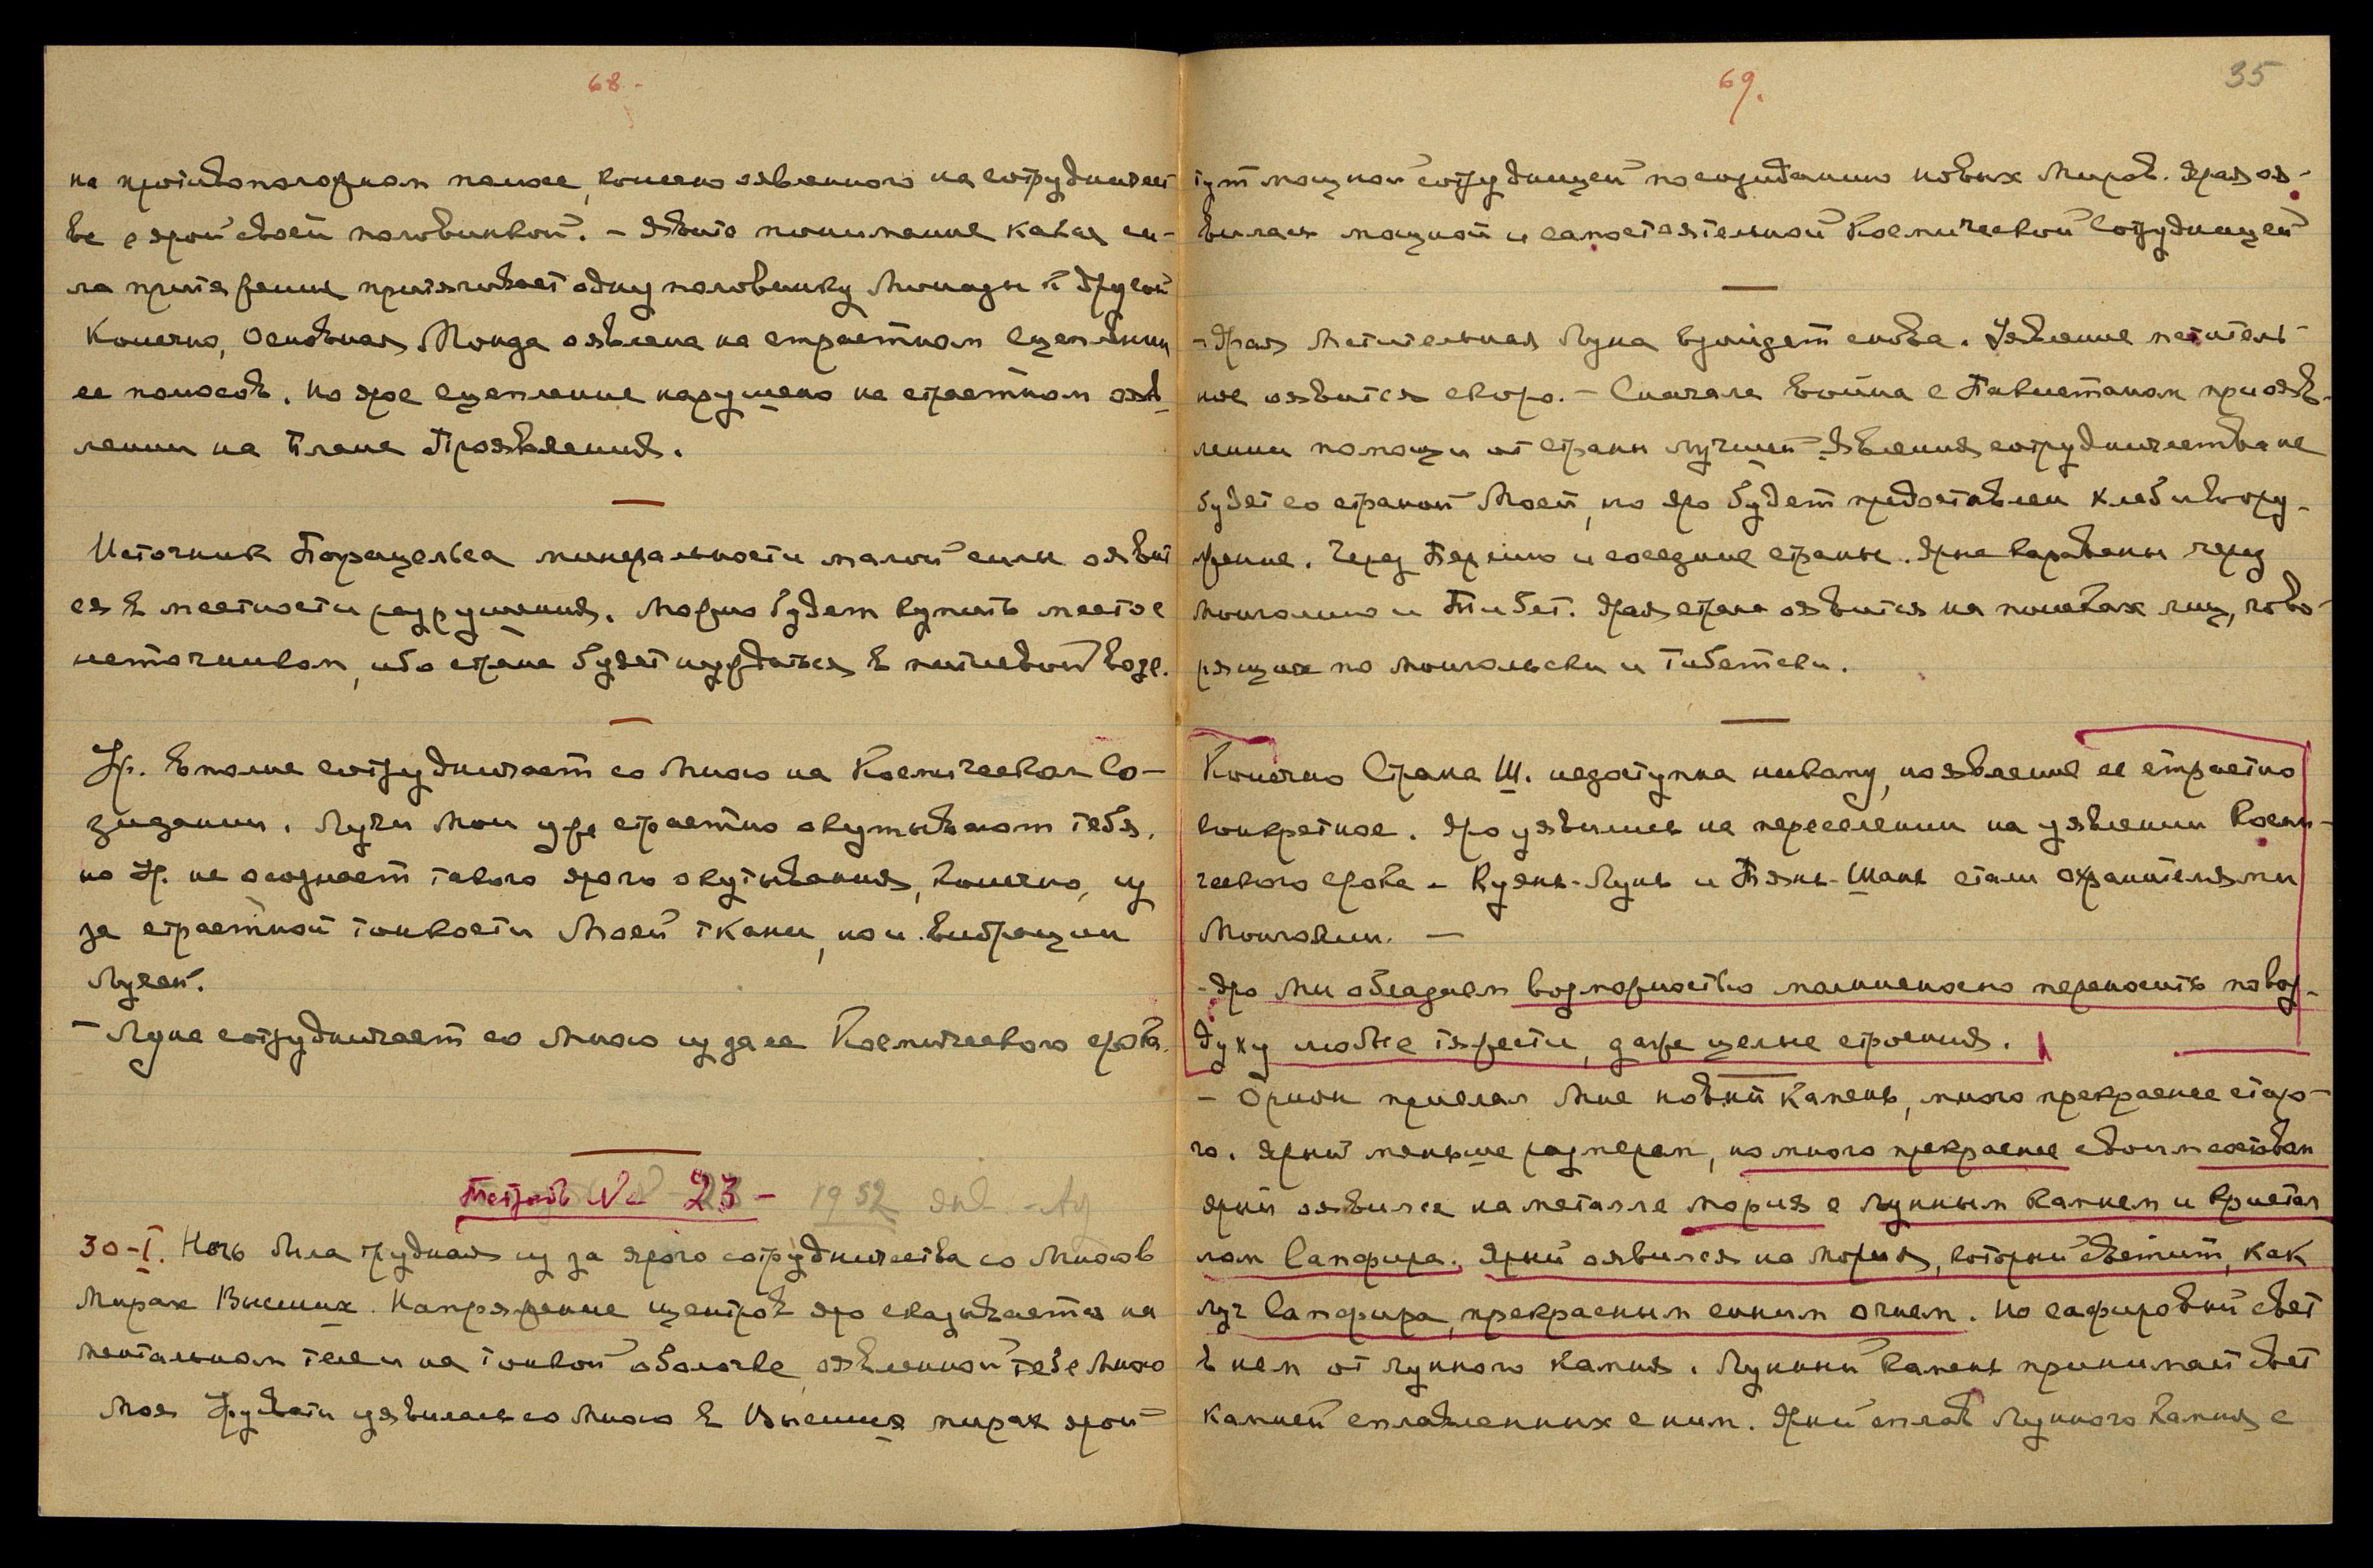 68 -
на противоположном полюсе, конечно оявленного на сотрудничест
ве с ярой своей половинкой. – Явите понимание какая си-
ла притяжения притягивает одну половинку Монады к другой
Конечно, Основная Монда оявлена на страстном сцеплении
ее полюсов. Но ярое сцепление нарушено на страстном ояв-
лении на Плане Проявления.
Источник Парацельса минеральности малой силы оявит
ся в местности разрушения. Можно будет купить место с
источником, ибо страна будет нуждаться в питьевой воде.
Ур. вполне сотрудничает со Мною на Космическом Со-
зидании. Лучи Мои уже страстно окутывают тебя.
но Ур. не осознает такого ярого окутывания, конечно, из
за страстной тонкости Моей ткани, но и вибрации
Лучей.
– Луна сотрудничает со Мною из за ее Космического срока.
Тетрадь № 23 – 1952 янв.
30-I. Ночь была трудная из за ярого сотрудничества со Мною в
Мирах Высших. Напряжение центров яро сказывается на
ментальном теле и на тонкой оболочке, оявленной тебе Мною
Моя Урусвати уявилась со Мною в Высших мирах ярой
69.
35
тут мощной сотрудницей по созиданию новых Миров. Ярая оя-
вилась мощной и самостоятельной Космической Сотрудницей
– Ярая Мстительная Луна вредит снова. Уявление мститель
ное оявится скоро. – Сначала война с Пакистаном при ояв-
лении помощи от страны лучшей Явления сотрудничества не
будет со страной Моей, но яро будет предоставлен хлеб и воору-
жение. Через Персию и соседние страны. Ярые караваны через
Монголию и Тибет. Ярая страна оявится на поисках лиц, гово-
рящих по монгольски и тибетски.
Конечно Страна Ш. недоступна никому, но явление ее страстно
конкретное. Яро уявились на переселении на уявлении Косми-
ческого срока – Куэнь-Лунь и Тянь-Шань стали охранителями
Монголии. –
– Яро Мы обладаем возможностью молниеносно переносить по воз-
духу любые тяжести, даже целые строения.
– Орион прислал Мне новый Камень, много прекраснее старо-
го. Ярый меньше размером, но много прекраснее своим составом
ярый оявился на металле мория с лунным камнем и кристал
лом Сапфира. Ярый оявился на Мория, который светит, как
луч Сапфира, прекрасным синим огнем. Но сафировый свет
в нем от лунного камня. Лунный камень принимает свет
камней сплавленных с ним. Ярый сплав Лунного камня с